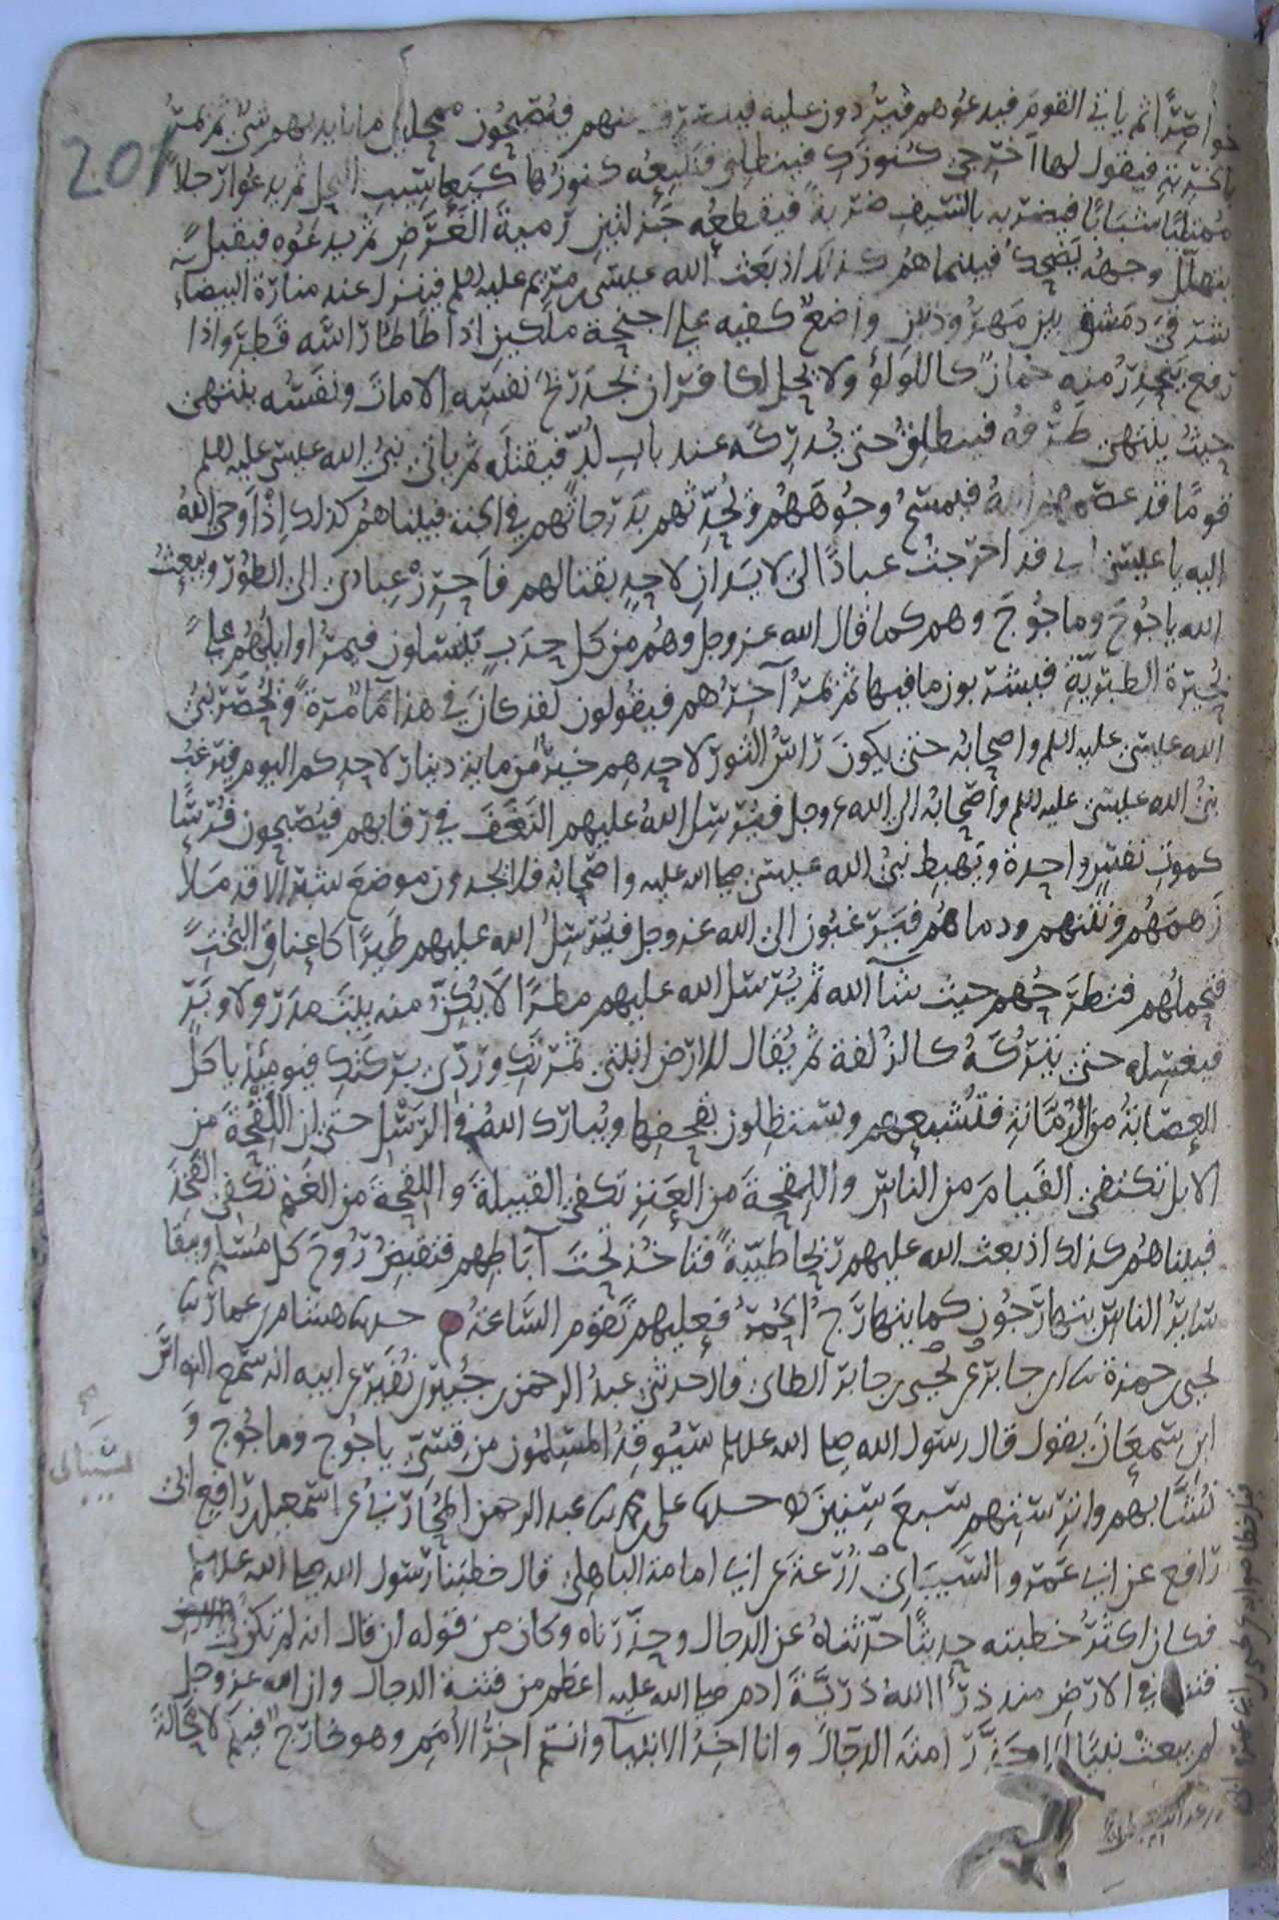 خواصرا ثم ياتي القوم فيدعوهم فيردون عليه فينصرف عنهم فيصبحون ممحلين ما بايديهم شي ثم يمر
بالخربة فيقول لها اخرجي كنوزك فينطلق فتتبعه كنوزها كيعاسيب النحل ثم يدعوا رجلا
ممتلئا شبابا فيضربه بالسيف ضربة فيقطعه جزلتين رمية الغرض ثم يدعوه فيقبل
يتهلل وجهه يضحك فبينما هم كذلك اذ بعث الله عيسى بن مريم عليه السلم فينزل عند منارة البيضاء
شرقي دمشق بين مهرودتين واضع كفيه على اجنحة ملكين اذا طاطا راسه قطر واذا
رفع يتحدر منه جمان كاللولؤ ولا يحل لكافر ان يجد ريح نفسه الا مات ونفسه ينتهي
حيث ينتهي طرفه فينطلق حتى يدركه عند باب لد فيقتله ثم ياتي نبي الله عيسى عليه السلم
قوما قد عصمهم الله فيمسح وجوههم ويحدثهم بدرجاتهم في الجنة فبيناهم كذلك اذ اوحى الله
اليه يا عيسى اني قد اخرجت عبادا لي لا يدان لاحد بقتالهم فاحرز عبادي الى الطور ويبعث
الله ياجوج وماجوج وهم كما قال الله عز وجل وهم من كل حدب ينسلون فيمر اوايلهم على
بحيرة الطبرية فيشربون ما فيها ثم يمر آخرهم فيقولون لقد كان في هذا ما مرة ويحصر نبي
الله عيسى عليه السلم واصحابه حتى يكون راس الثور لاحدهم خير من ماية دينار لاحدكم اليوم فيرغب
نبي الله عيسى عليه السلم واصحابه الى الله عز وجل فيرسل الله عليهم النغف في رقابهم فيصبحون فرسا
كموت نفس واحدة ويهبط نبي الله عيسى صلى الله عليه واصحابه فلا يجدون موضع شبر الا قد ملا
زهمهم ونتنهم ودماهم فيرغبون الى الله عز وجل فيرسل الله عليهم طيرا كاعناق البخت
فتحملهم فتطرحهم حيث شآ الله ثم يرسل الله عليهم مطرا لا يكن منه بيت مدر ولا وبر
فيغسله حتى يتركه كالزلفة ثم يقال للارض انبتي ثمرتك وردي بركتك فيومئذ ياكل
العصابة من الرمانة فتشبعهم ويستظلون بقحفها ويبارك الله في الرسل حتى ان اللقحة من
الابل تكتفي الفيام من الناس واللقحة من العنز تكفي القبيلة واللقحة من الغنم تكفي الفخذ
فبيناهم كذلك اذ بعث الله عليهم ريحا طيبة فتاخذ تحت آباطهم فتقبض روح كل مسلم ويبقا
ساير الناس يتهارجون كما يتهارج الحمر فعليهم تقوم الساعة حدثنا هشام بن عمار ثنا
يحيى بن حمزة ثنا ابن جابر عن يحيى بن جابر الطائي قال حدثني عبد الرحمن بن جبير بن نفير عن ابيه انه سمع النواس
ابن سمعان يقول قال رسول الله صلى الله عليه وسلم سيوقد المسلمون من قسي ياجوج وماجوج و
نشابهم واترستهم سبع سنين حدثنا علي بن محمد ثنا عبد الرحمن المحاربي عن اسمعيل بن رافع ابي
رافع عن ابي عمرو الشيباني زرعة عن ابي امامة الباهلي قال خطبنا رسول الله صلى الله عليه وسلم
فكان اكثر خطبته حديثا حدثناه عن الدجال وحذرناه وكان من قوله ان قال انه لم تكن
فتنة في الارض منذ ذرا الله ذرية ادم صلى الله عليه اعظم من فتنة الدجال وان الله عز وجل
لم يبعث نبيا الا حذر امته الدجال وانا اخر الانبيآ وانتم اخر الامم وهو خارج فيكم لا محالة
201